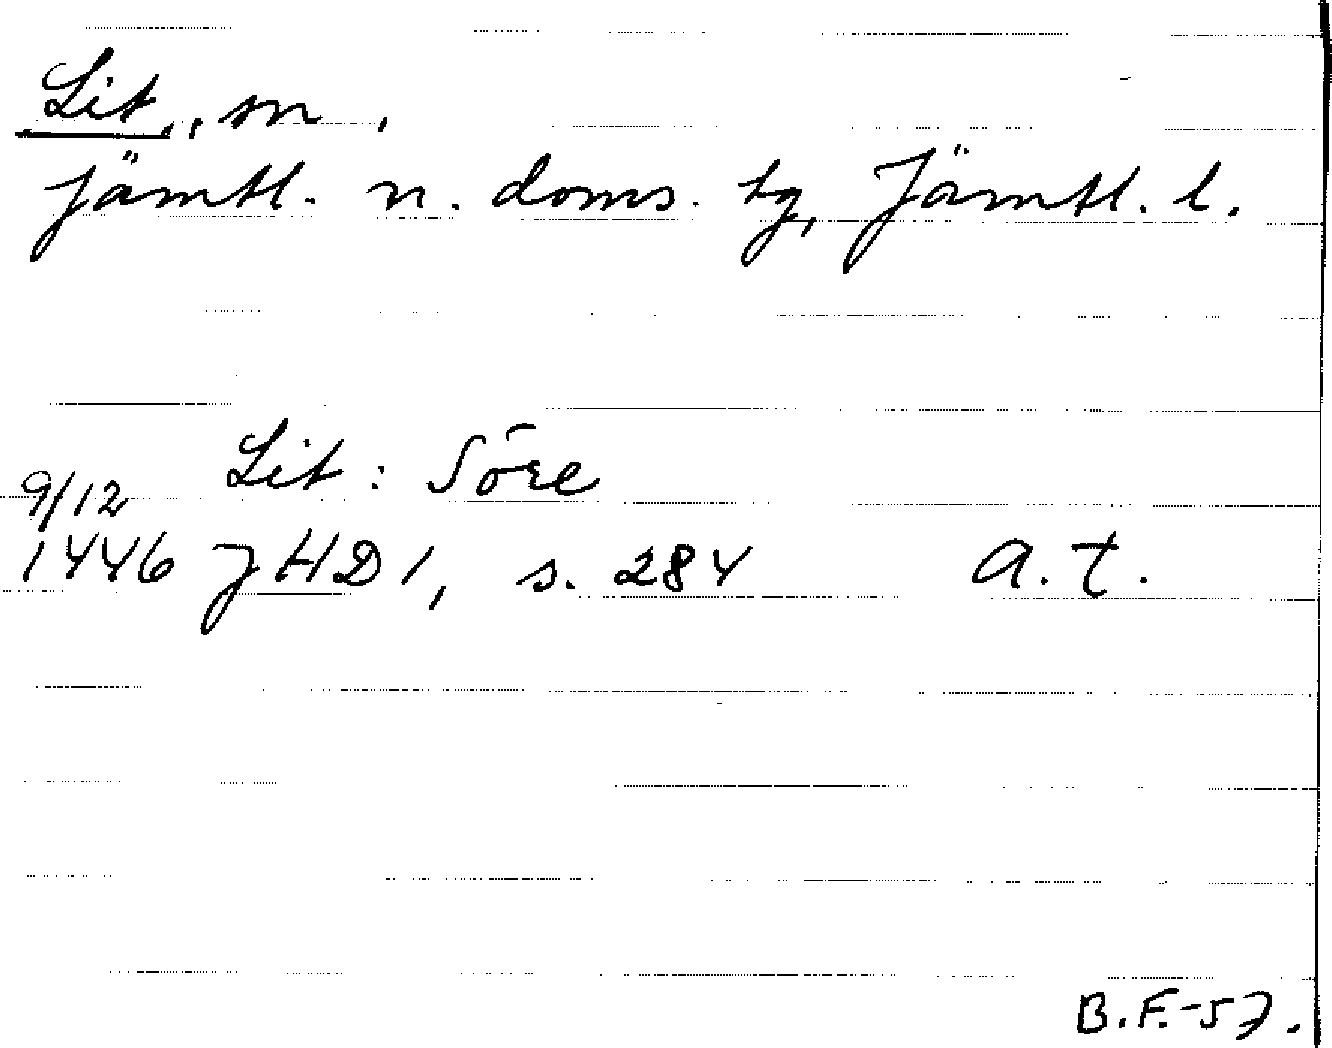 Lit, sn,
jämtl. n. doms. tg, Jämtl. l.
Lit: Söre
9/12
1446 JHD 1, s. 284 a. t.
B.F.-57.